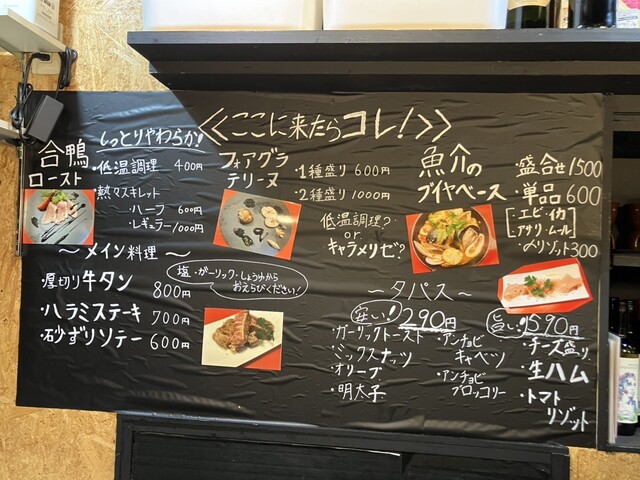 <<ここに来たらコレ!>>
合鴨
ロースト
しっとりやわらか!
・低温調理 400円
・熱々スキレット
・ハーフ 600円
・レギュラー 1000円
フォアグラ
テリーヌ
・1種盛り 600円
・2種盛り 1000円
低温調理?
or
キャラメリゼ?
魚介の
ブイヤベース
・盛合せ 1500
・単品 600
[・エビ・イカ
アサリ・ムール]
・〆リゾット 300
〜メイン料理〜
・厚切り牛タン 800円
・ハラミステーキ 700円
・砂ずりソテー 600円
塩・ガーリック・しょうゆから
おえらびください!
〜タパス〜
安い! 290円
・ガーリックトースト
・ミックスナッツ
・オリーブ
・明太子
・アンチョビ
キャベツ
・アンチョビ
ブロッコリー
旨い! 590円
・チーズ盛り
・生ハム
・トマト
リゾット